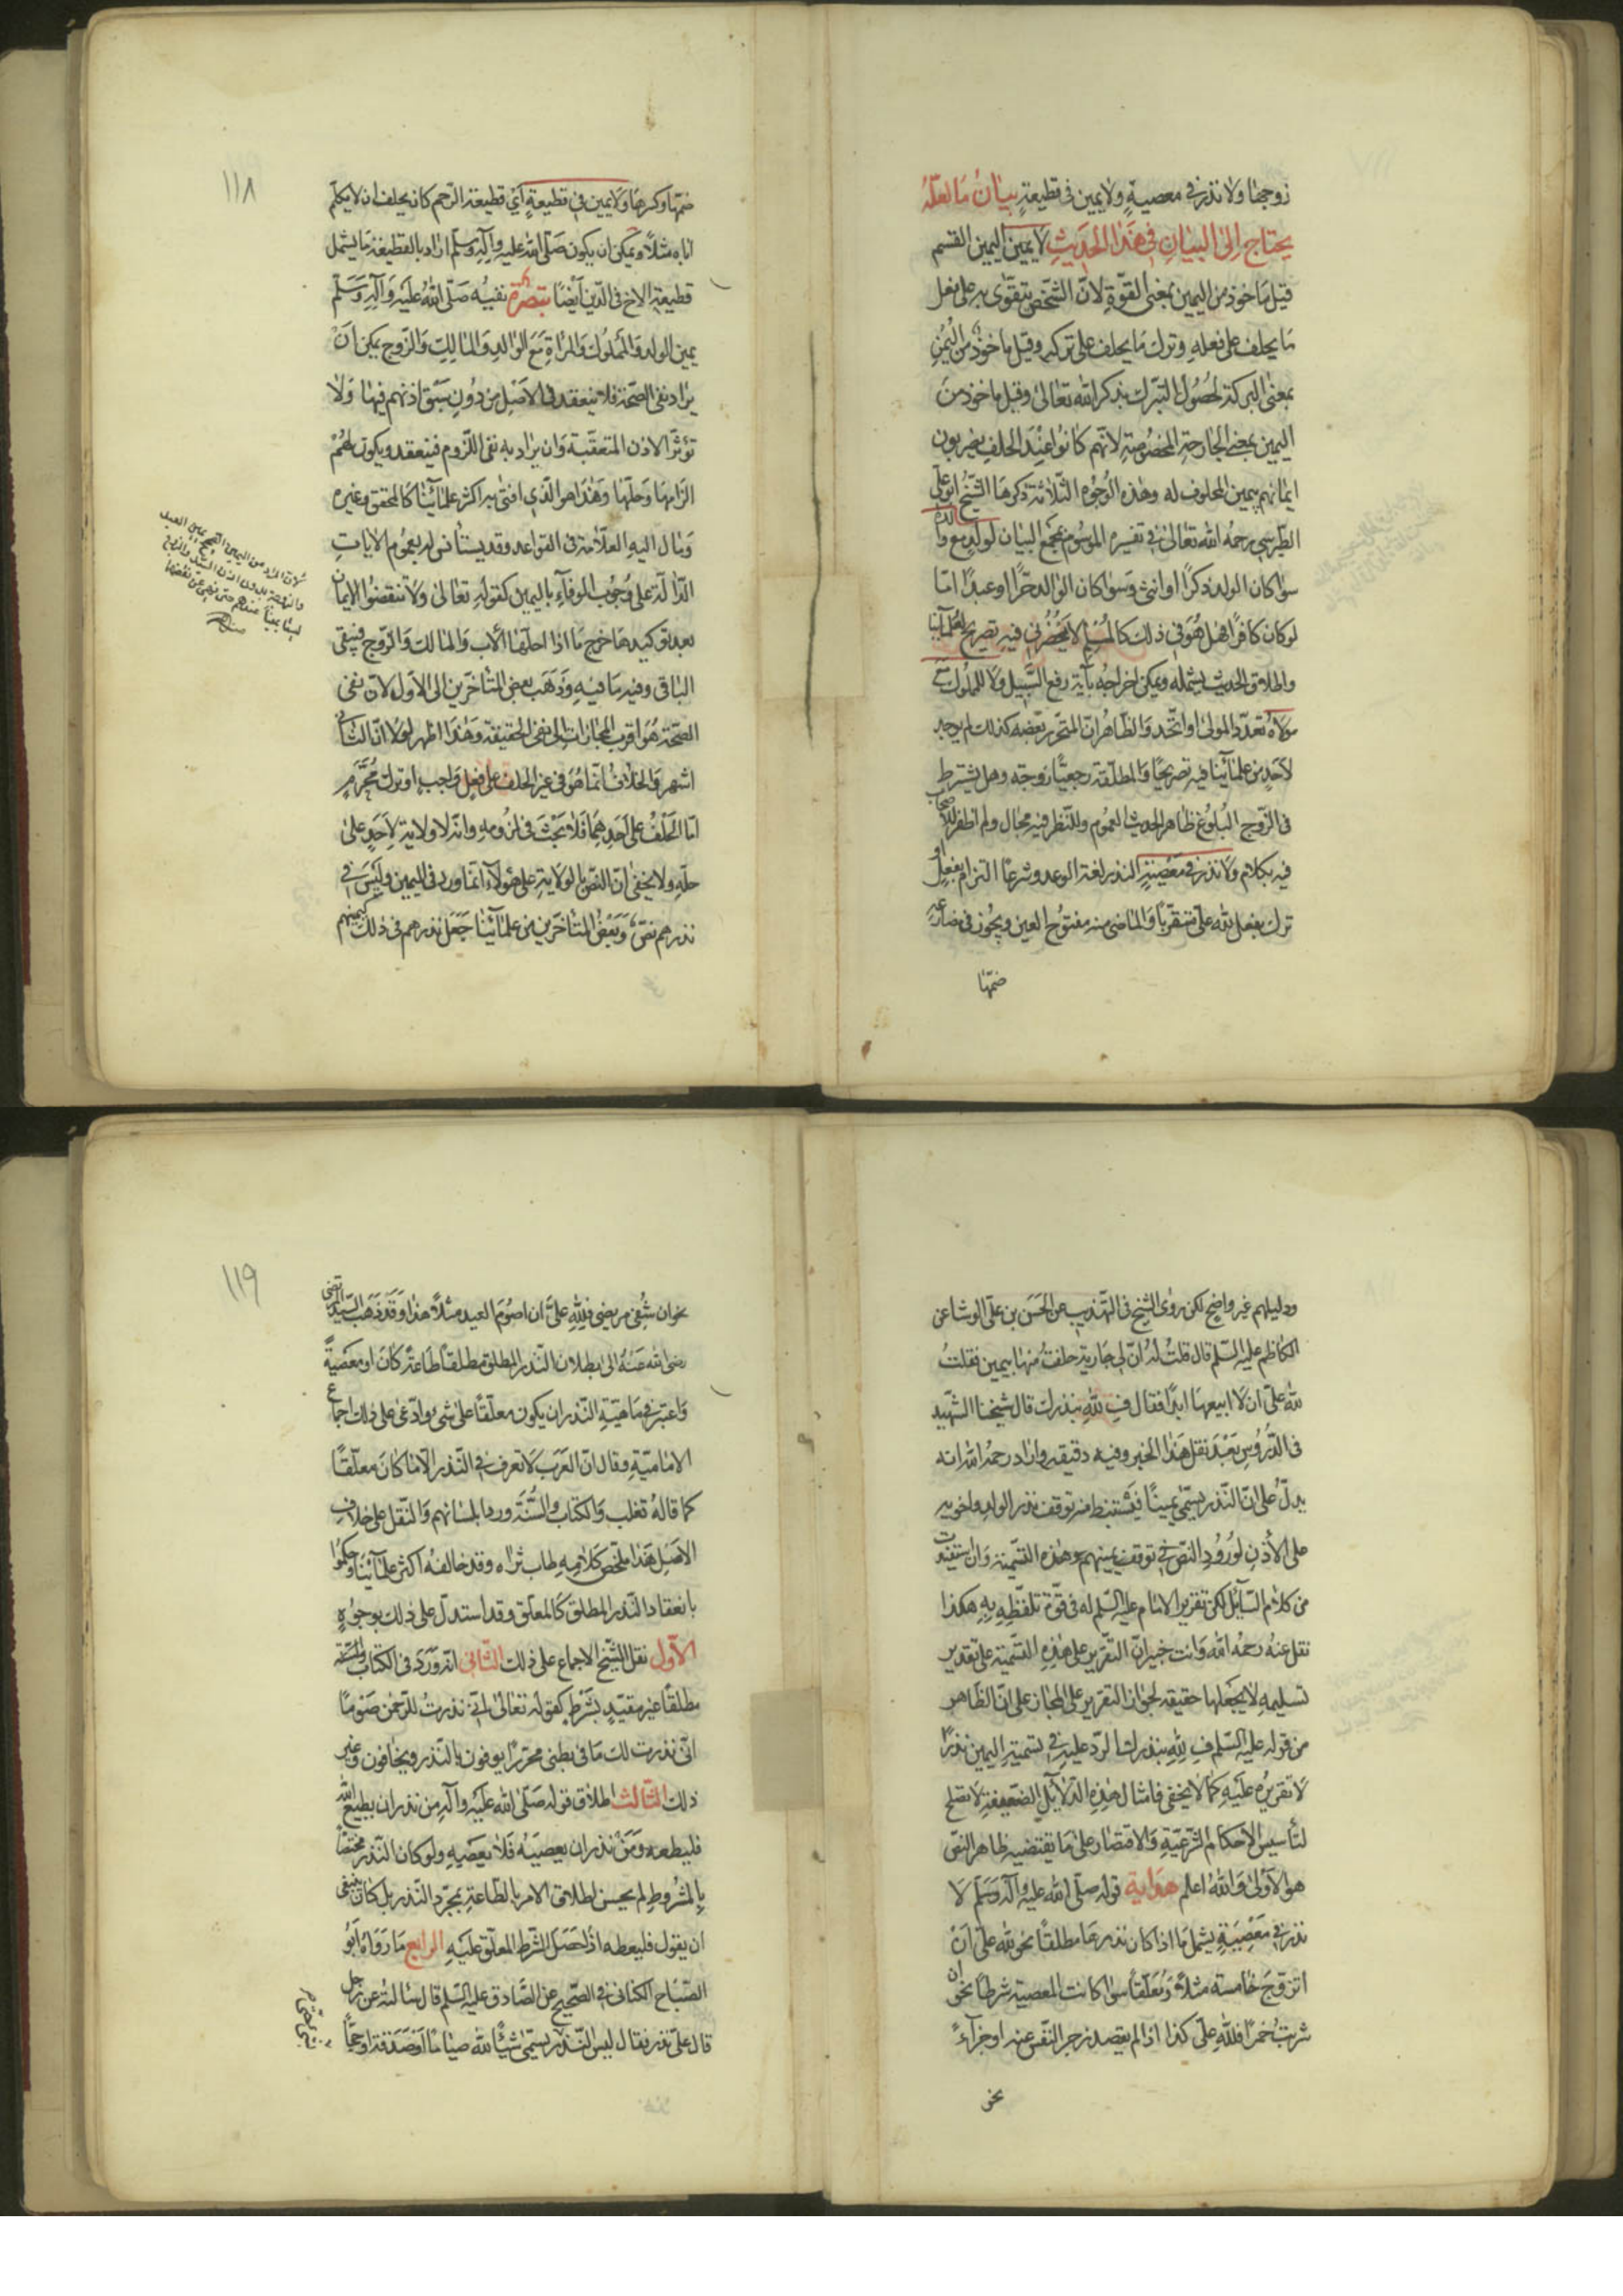 زوجها ولا نذر في معصيةٍ ولا يمين في قطيعةٍ بيان ما لعلّه
يحتاج إلى البيان في هذا الحديث لا يمين اليمين القسم
قيل ماخوذ من اليمين بمعنى القوّة لانّ الشخص يتقوّى به على فعل
ما يحلف على فعله وترك ما يحلف على تركه وقيل ماخوذ من اليُمن
بمعنى البركة لحصول التبرّك بذكر الله تعالى وقيل ماخوذ من
اليمين بمعنى الجارحة المخصوصة لانّهم كانوا عند الحلف يضربون
ايمانهم بيمين المحلوف له وهذه الوجوه الثلاثة ذكرها الشيخ ابو علي
الطبرسي رحمه الله تعالى في تفسيره الموسوم بمجمع البيان لولدٍ مع والده
سوا كان الولد ذكرًا او انثى وسوا كان الوالد حرًّا او عبدًا امّا
لو كان كافرًا فهل هو في ذلك كالمسلم لا يحضرني فيه تصريح لعلمآئنا
واطلاق الحديث يشمله ويمكن اخراجه بآية رفع السبيل ولا للمملوك مع
مولاه تعدّد المولى او اتّحد والظاهر انّ المتحرر بعضه كذلك لم يوجد
لاحدٍ من علمآئنا فيه تصريحًا والمطلّقة رجعيّا زوجته وهل يشترط
في الزّوج البلوغ ظاهر الحديث العموم وللنّظر فيه مجال ولم اظفر للاصحاب
فيه بكلام ولا نذر في معصيةٍ النذر لغة الوعد وشرعًا التزام بفعلٍ او
ترك بفعل لله علىّ متقرّبًا والماضى منه مفتوح العين ويجوز في مضارعه
ضمّها
ضمّها وكسرها ولا يمين في قطيعةٍ أي قطيعة الرّحم كان يحلف ان لا يكلّم
اباه مثلاً ويمكن ان يكون صلّى الله عليه وآله وسلّم اراد بالقطيعة ما يشمل
قطيعة الاخ في الدّين ايضًا تبصرة نفيه صلّى الله عليه وآله وسلّم
يمين الولد والمملوك والمرأة مع الوالد والمالك والزّوج يمكن ان
يراد نفى الصحّة فلا ينعقد في الاصل من دون سبق اذنهم فيها ولا
تؤثّر الاذن المتعقّبة وان يراد به نفى اللّزوم فينعقد ويكون لهم
الزامها وحلّها وهذا هو الّذي افتى به اكثر علمآئنا كالمحقق وغيره
ومال اليه العلّامة في القواعد وقد يستأنس له بعموم الآيات
الدّالة على وجوب الوفآء باليمين كقوله تعالى ولا تنقضوا الايمان
بعد توكيدها خرج ما اذا احلّها الاب والمالك والزّوج فيبقى
الباقى وفيه ما فيه وذهب بعض المتأخّرين الى الاول لانّ نفى
الصحّة هو اقرب المجازات الى نفى الحقيقة وهذا اظهر لولا انّ الثانى
اشهر والخلاف انّما هو في غير الحلف على فعل واجب او ترك محرّمٍ
امّا الحلف على احدهما فلا بحث في لزومه وانّه لا ولاية لاحدٍ على
حلّه ولا يخفى انّ النصّ بالولاية على هؤلآء انّما ورد في اليمين وليس في
نذرهم نصّ وبعض المتأخّرين من علمآئنا جعل نذرهم في ذلك كيمينهم
١١٨
ودليلهم غير واضح لكن روى الشيخ في التهذيب عن الحسن بن علىّ الوشا عن
الكاظم عليه السّلم قال قلت له انّ لي جارية حلفت منها بيمين فقلت
لله علىّ ان لا ابيعها ابدًا فقال فِ لله بنذرك قال شيخنا الشّهيد
في الدّروس بعد نقل هذا الخبر وفيه دقيقه واراد رحمه الله انه
يدلّ على انّ النّذر يسمّى يمينًا فيستنبط منه توقف نذر الولد واخويه
على الأذن لورود النصّ في توقف يمينهم وهذه التسمية وان استفيدت
من كلام السّآئل لكن تقرير الامام عليه السّلم له في قوّة تلفّظه به هكذا
نقل عنه رحمه الله وانت خبير انّ التقرير على هذه التسمية على تقدير
تسليمه لا يجعلها حقيقه لجواز التقرير على المجاز على انّ الظاهر
من قوله عليه السّلم فِ لله بنذرك الرّد عليه في تسمية اليمين نذرًا
لا تقريره عليه كما لا يخفى فامثال هذه الدّلآئل الضعيفة لا تصلح
لتأسيس الاحكام الشّرعيّة والاقتصار على ما يقتضيه ظاهر النصّ
هو الاولى والله اعلم هداية قوله صلّى الله عليه وآله وسلّم لا
نذر في معصيةٍ يشمل ما اذا كان نذرها مطلقًا نحو لله علىّ ان
اتزوّج خامسة مثلاً ومعلّقًا سوا كانت المعصية شرطًا نحو ان
شربت خمرًا فلله علىّ كذا اذا لم يقصد زجر النّفس عنه او جزآءً
نحو
نحو ان شُفى مريضى فلله علىّ ان اصوم العيد مثلاً هذا وقد ذهب السّيد المرتضى
رضى الله عنه الى بطلان النّذر المطلق مطلقًا طاعةً كان او معصيةً
واعتبر في ماهيّة النّذر ان يكون معلّقًا على شىء وادّعى على ذلك اجماع
الاماميّة وقال انّ العرب لا تعرف في النّذر الّا ما كان معلّقًا
كما قاله ثعلب والكتاب والسّنّة وردا بلسانهم والنّقل على خلاف
الاصل هذا ملخّص كلامه طاب ثراه وقد خالفه اكثر علمآئنا وحكموا
بانعقاد النّذر المطلق كالمعلّق وقد استدلّ على ذلك بوجوهٍ
الأوّل نقل الشّيخ الاجماع على ذلك الثّاني انّه ورد في الكتاب والسّنّة
مطلقًا غير مقيّدٍ بشرط كقوله تعالى انّي نذرت للرّحمن صومًا
انّى نذرت لك ما في بطنى محرّرًا يوفون بالنّذر ويخافون وغير
ذلك الثّالث اطلاق قوله صلّى الله عليه وآله من نذر ان يطيع الله
فليطعه ومن نذر ان يعصيه فلا يعصيه ولو كان النّذر مختصًّا
بالمشروط لم يحسن اطلاق الامر بالطّاعة بمجرّد النّذر بل كان ينبغى
ان يقول فليعطه اذا حصل الشّرط المعلّق عليه الرابع ما رواه ابو
الصّباح الكنانى في الصّحيح عن الصّادق عليه السّلم قال سالته عن رجل
قال علىّ نذر فقال ليس النّذر بشىء حتى يسمّى شيئًا لله صيامًا او صدقة او حجًّا
١١٩